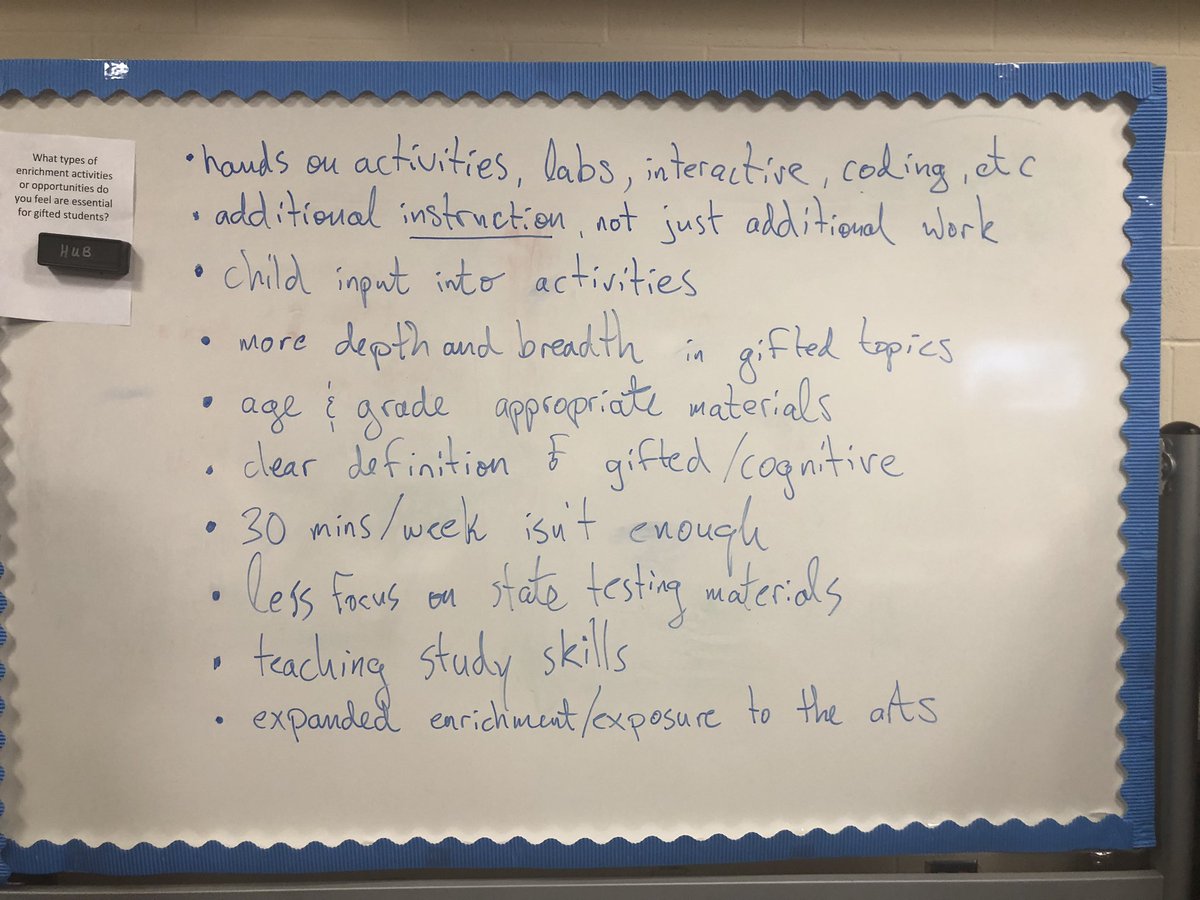 What types of
enrichment activities
or opportunities do
you feel are essential
for gifted students?
HUB
• hands on activities, labs, interactive, coding, etc
• additional instruction, not just additional work
• child input into activities
• more depth and breadth in gifted topics
• age & grade appropriate materials
• clear definition of gifted/cognitive
• 30 mins/week isn't enough
• less focus on state testing materials
• teaching study skills
• expanded enrichment/exposure to the arts